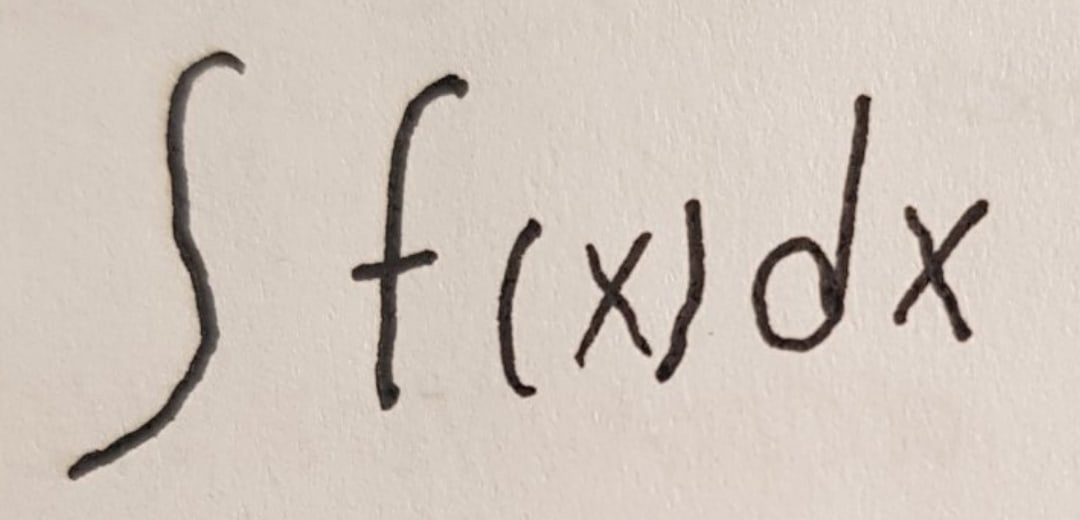 ∫ f(x) dx